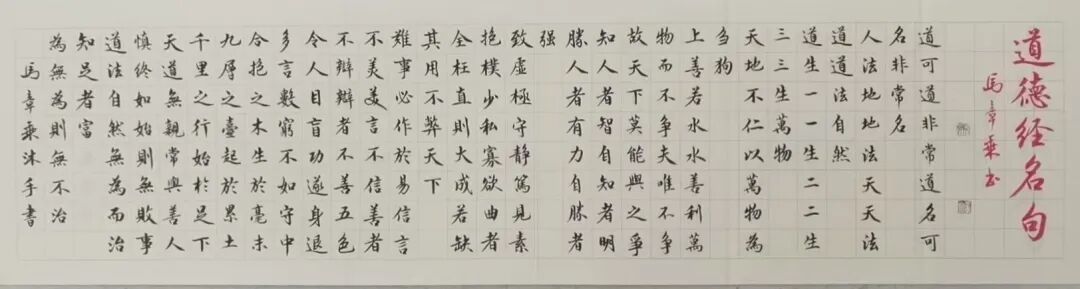 道德经名句
馬章乘书
道可道非常道名可
名非常名
人法地地法天天法
道道法自然
道生一一生二二生
三三生萬物
天地不仁以萬物為
刍狗
上善若水水善利萬
物而不争夫唯不争
故天下莫能與之爭
知人者智自知者明
勝人者有力自勝者
强
致虛極守静篤見素
抱樸少私寡欲曲者
全枉直則大成若缺
其用不弊天下
難事必作於易信言
不美美言不信善者
不辯辯者不善五色
令人目盲功遂身退
多言數窮不如守中
合抱之木生於毫末
九層之臺起於累土
千里之行始於足下
天道無親常與善人
慎終如始則無敗事
道法自然無為而治
知足者富
為無為則無不治
馬章乘沐手書